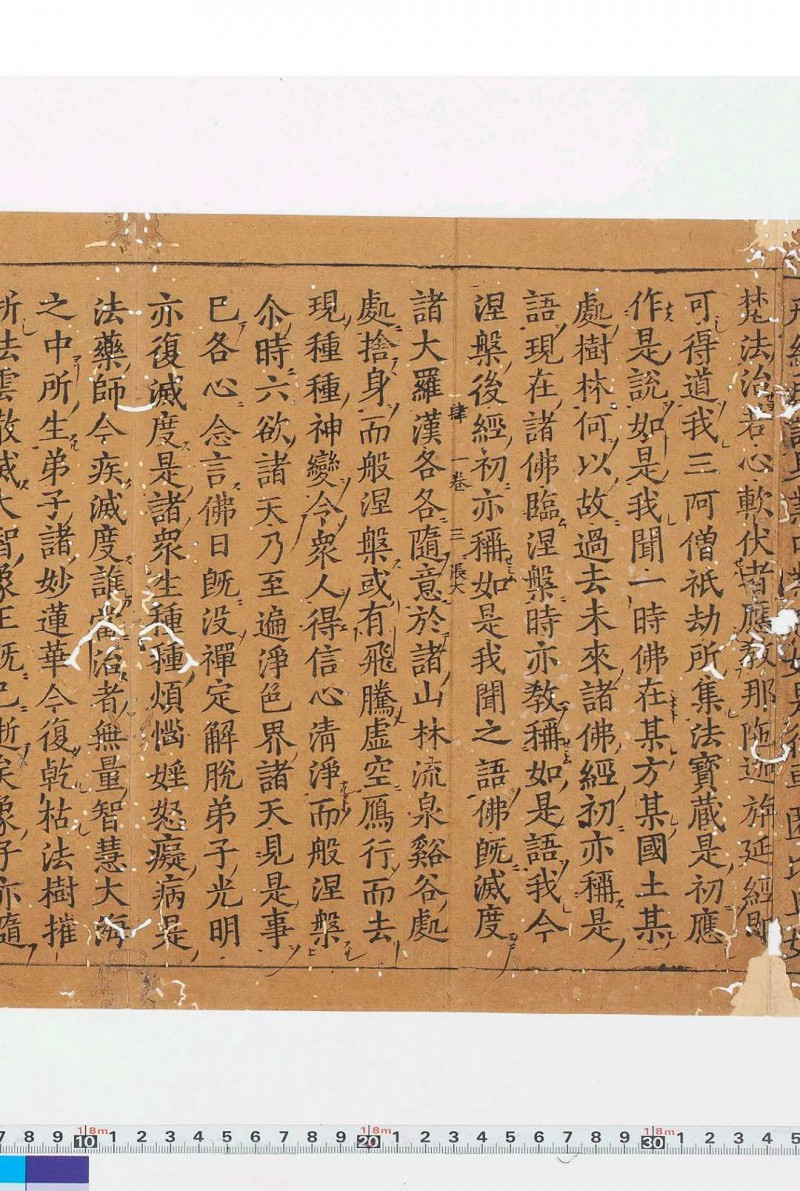 梵法治若心軟伏者應教那陁迦旃延經即
可得道我三阿僧祇劫所集法寶藏是初應
作是說如是我聞一時佛在某方某國土某
處樹林何以故過去未來諸佛經初亦稱是
語現在諸佛臨涅槃時亦教稱如是語我今
涅槃後經初亦稱如是我聞之語佛旣滅度
肆 一卷 三 張
諸大羅漢各各隨意於諸山林流泉谿谷處
處捨身而般涅槃或有飛騰虛空鴈行而去
現種種神變令衆人得信心清淨而般涅槃
尒時六欲諸天乃至遍淨色界諸天見是事
已各心念言佛日旣没禪定解脫弟子光明
亦復滅度是諸衆生種種煩惱婬怒癡病是
法藥師今疾滅度誰當治者無量智慧大海
之中所生弟子諸妙蓮華今復乾枯法樹摧
所法雲散滅大智象王旣已逝矣象子亦隨
7 8 9 10 1 2 3 4 5 6 7 8 9 20 1 2 3 4 5 6 7 8 9 30 1 2 3 4 5